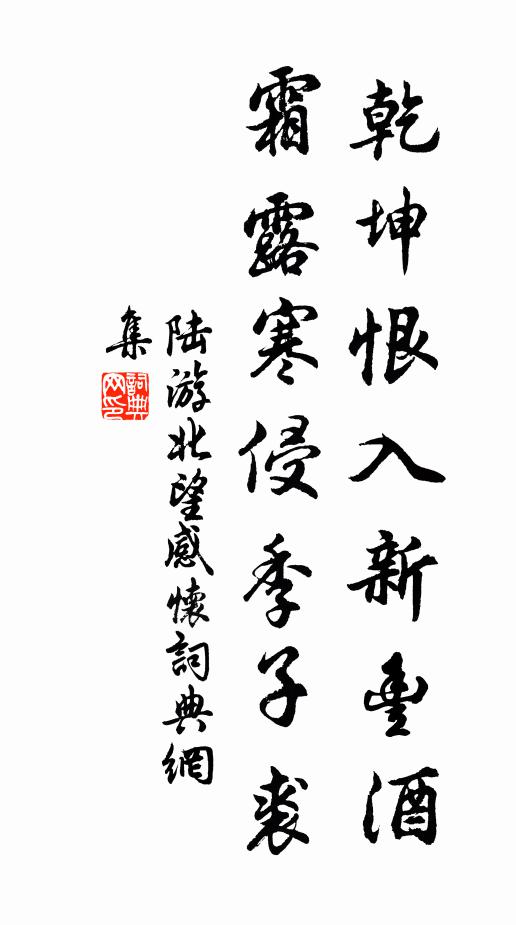 乾坤恨入新豐酒
霜露寒侵季子裘
陆游北望感懷詞典網
集
詞典
网印